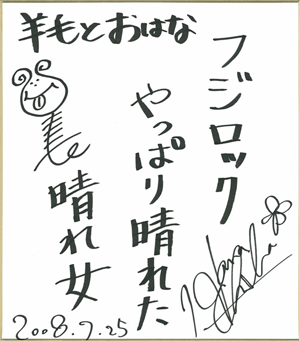 羊毛とおはな
フジロック
やっぱり晴れた
晴れ女
2008.7.25